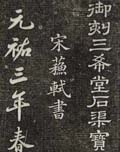 御刻三希堂石渠寶
宋蘓軾書
元祐三年春